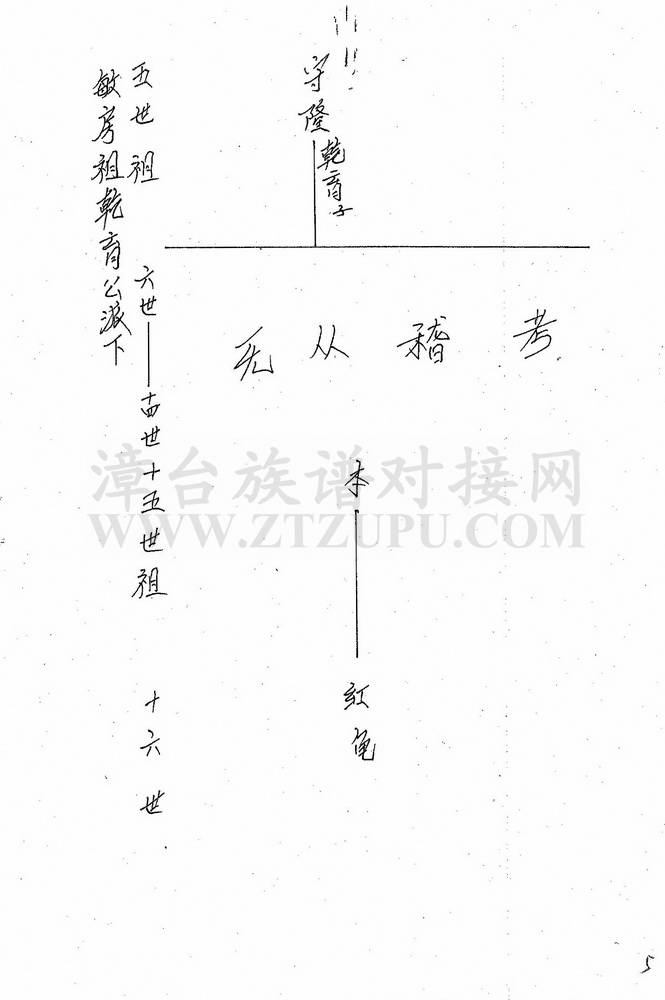 敏房祖乾育公派下
五世祖
六世——十四世十五世祖
十六世
守隆
乾育子
无从稽考
本
红龟
漳台族谱对接网
WWW.ZTZUPU.COM
5